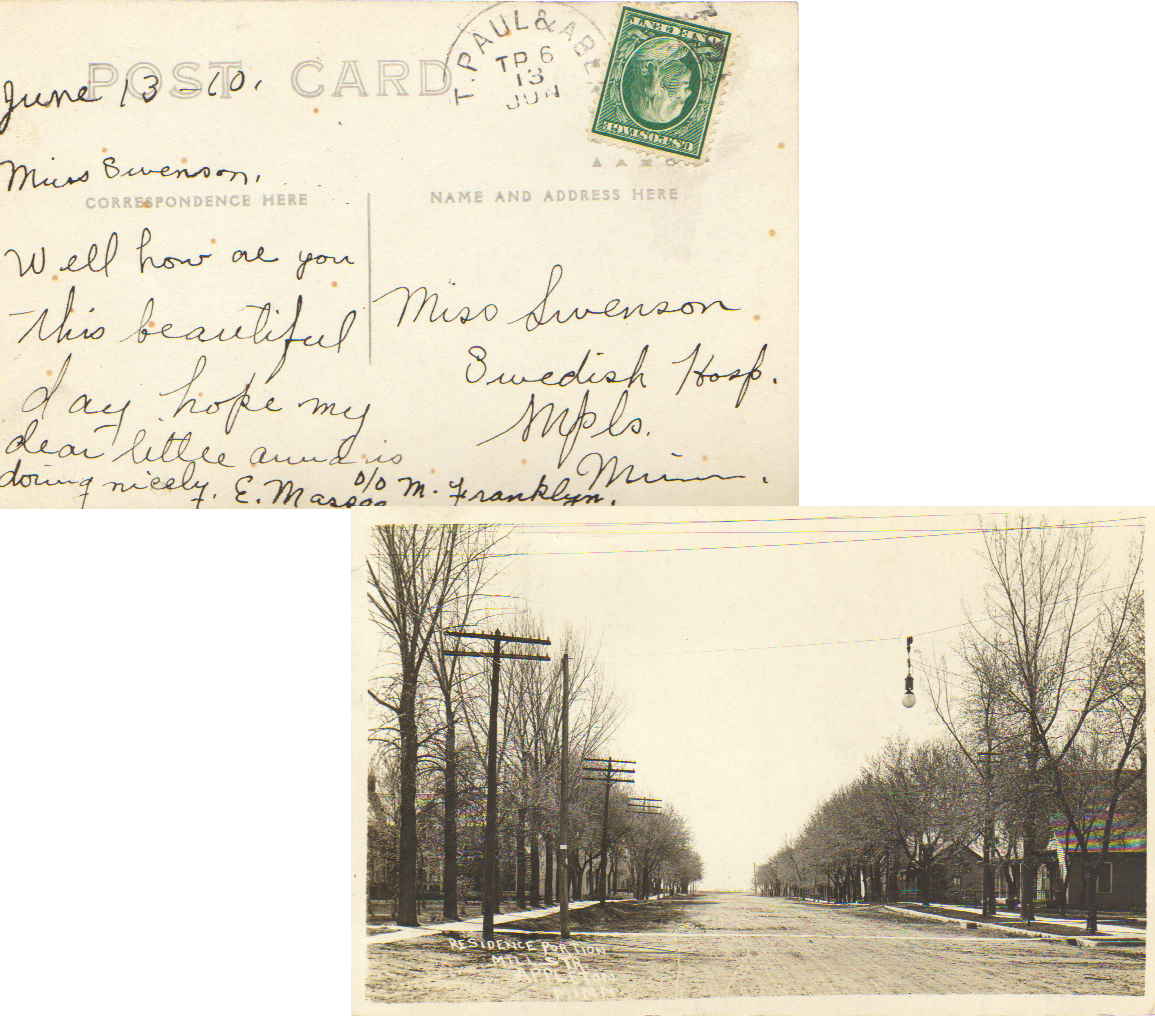 POST CARD
T. PAUL & ABE
TR. 6
13
JUN
ONE CENT
U.S. POSTAGE
June 13 -10.
Miss Swenson.
CORRESPONDENCE HERE
NAME AND ADDRESS HERE
Well how are you
this beautiful
day hope my
dear little anna is
doing nicely. E. c/o M. Franklyn.
Miss Swenson
Swedish Hosp.
Mpls.
Minn.
RESIDENCE PORTION
MILL STR.
APPLETON
MINN.